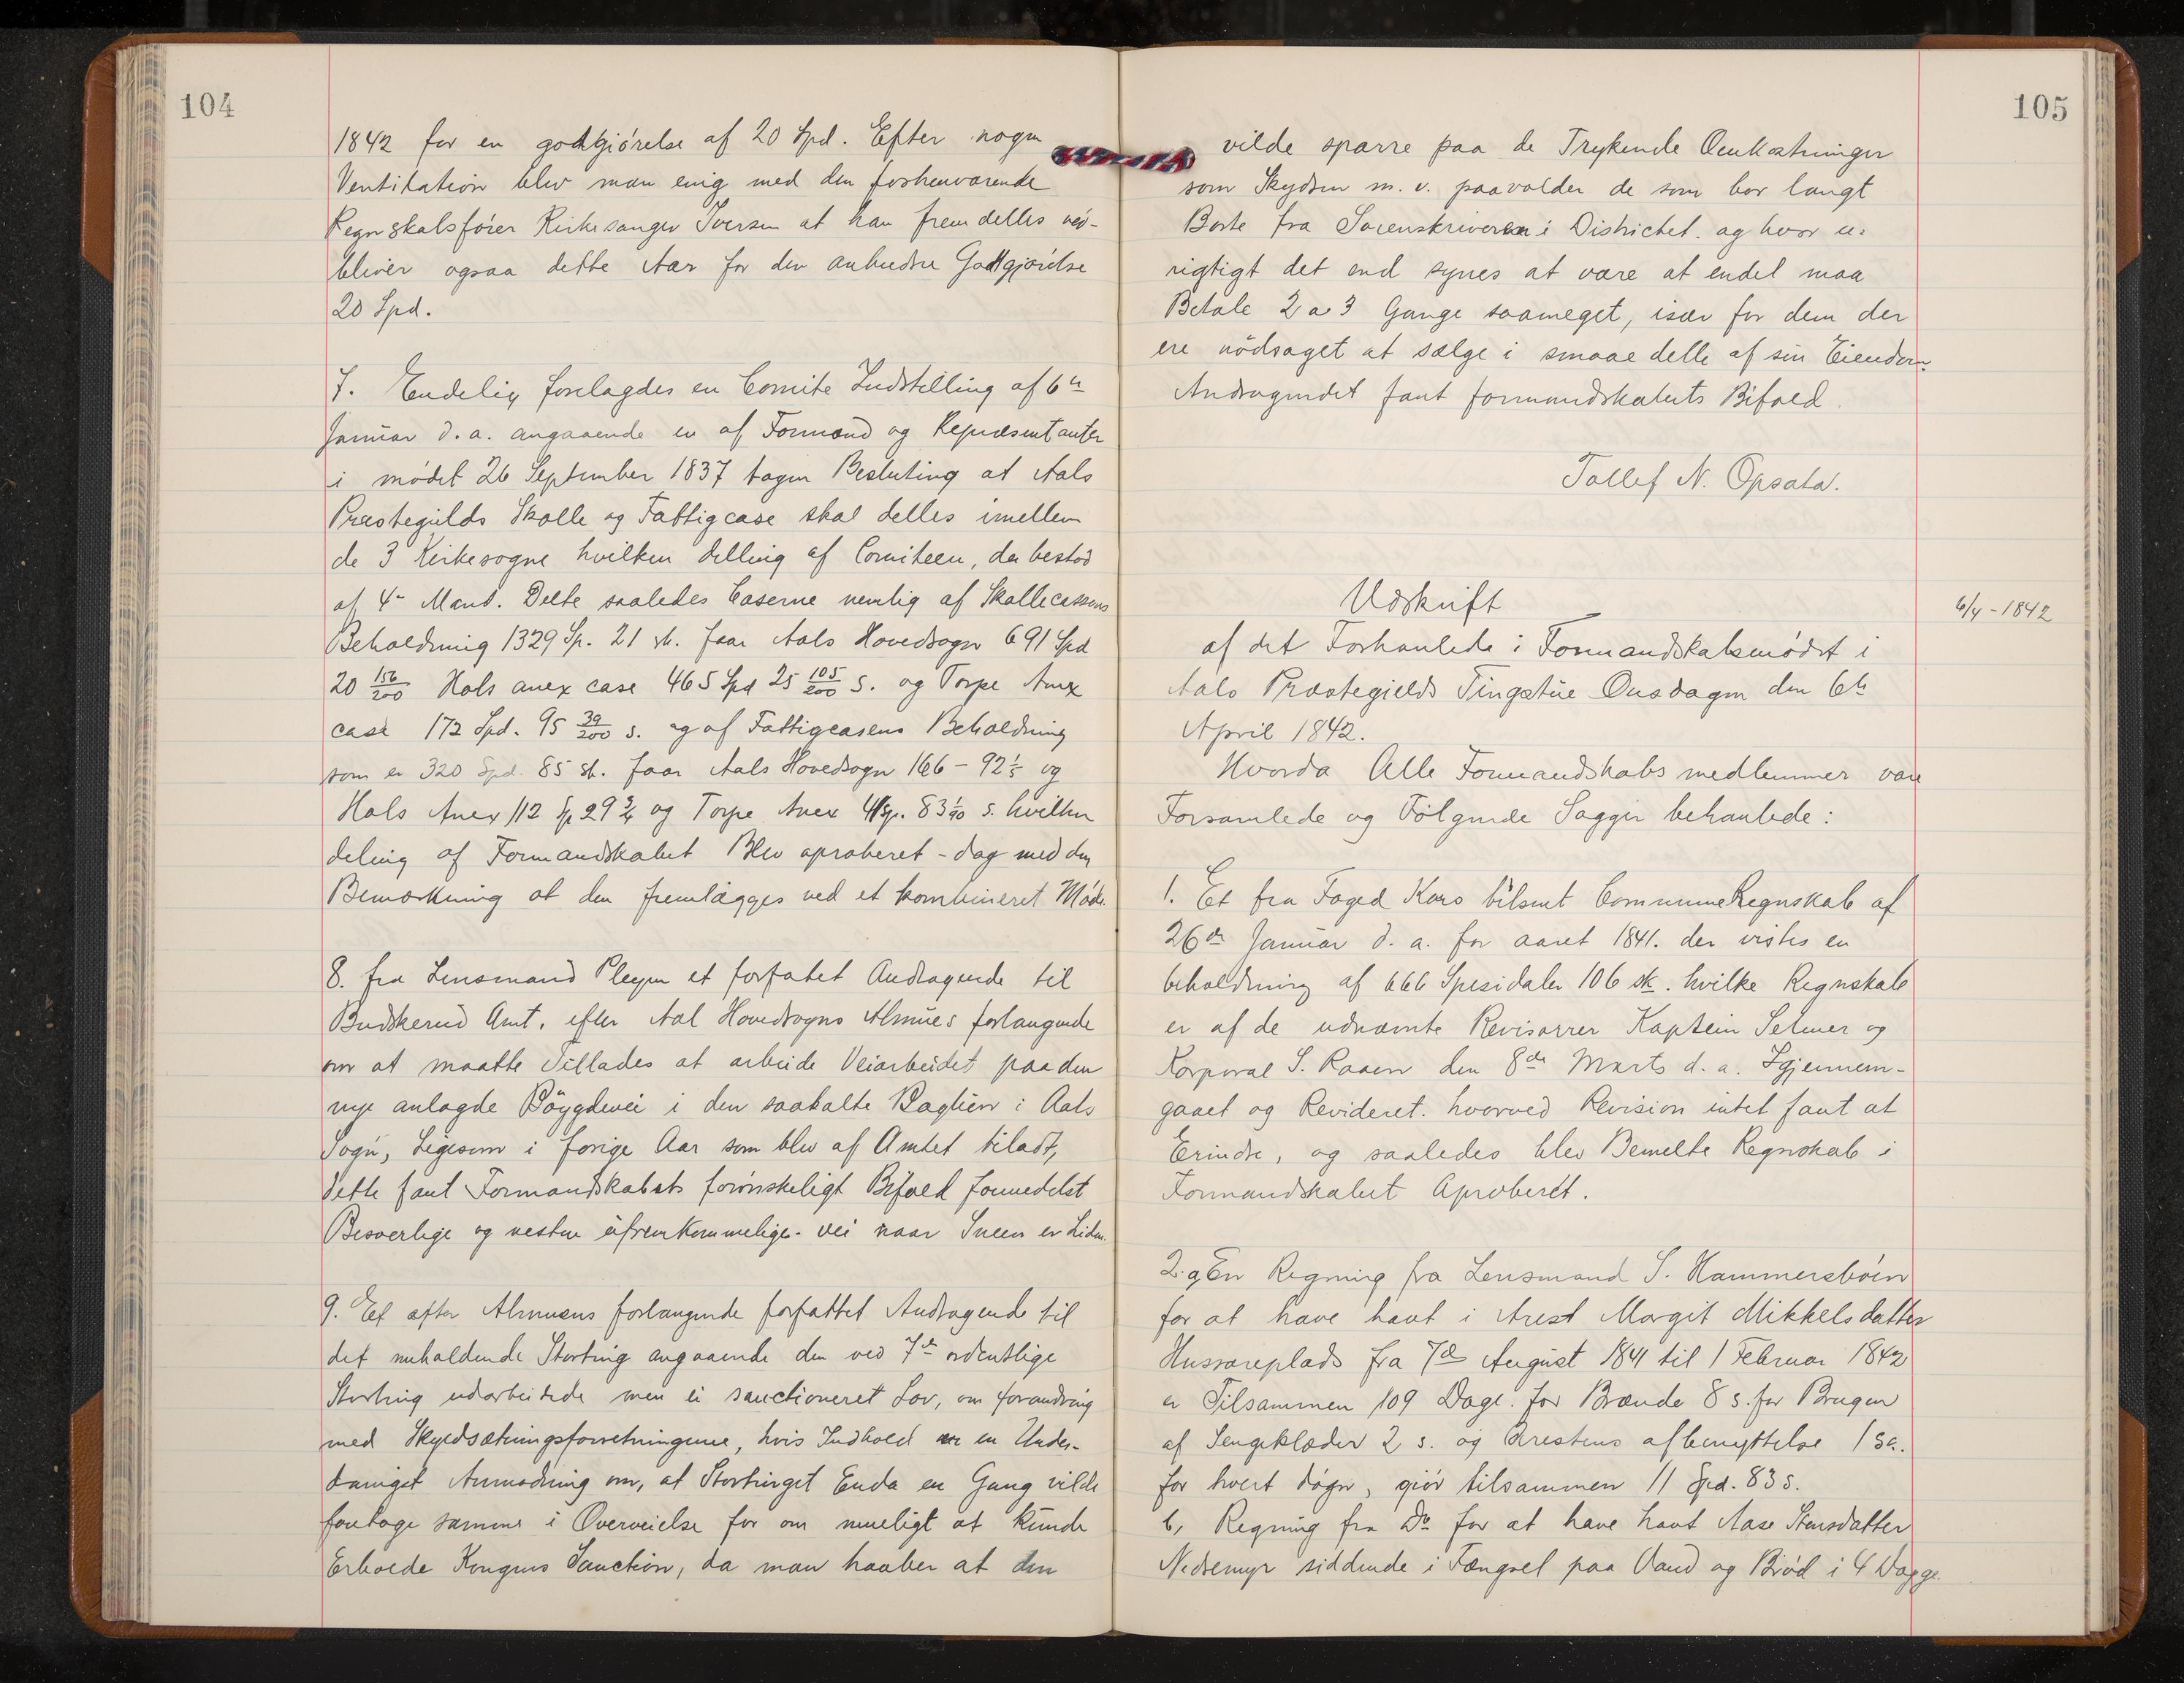 104
1842 for en godtgiørelse af 20 Spd. Efter nogen
Ventilation blev man enig med den forhenværende
Regnskabsfører Kirkesanger Iversen at han fremdelles ved-
bliver ogsaa dette Aar for den anbudne Godtgjørelse
20 Spd.
7. Endelig forelagdes en Comite Indstilling af 6te
Januar d. a. angaaende en af Formænd og Repræsentanter
i mødet 26 September 1837 tagen Beslutning at Aals
Præstegields Skolle og Fattigcase skal delles imellem
de 3 Kirkesogne hvilken delling af Comiteen, der bestod
af 4 Mand. Delte saaledes Caserne nemlig af Skollecassens
Beholdning 1329 Sp. 21 sk. faar Aals Hovedsogn 691 Spd
20 156/200 Hols anex case 465 Spd 25 105/200 s. og Torpe Anex
case 172 Spd. 95 39/200 s. og af Fattigcasens Beholdning
som er 320 Spd. 85 sk. faar Aals Hovedsogn 166 - 92 1/5 og
Hols Anex 112 Sp 29 3/4 og Torpe Anex 41 Sp. 83 1/90 s. hvilken
deling af Formandskabet Blev aproberet - dog med den
Bemærkning at den fremlægges ved et kombineret Møde.
8. fra Lensmand Pleym et forfatet Andragende til
Budskerud Amt. efter Aal Hovedsogns Almues forlangende
om at maatte Tillades at arbeide Veiarbeidet paa den
nye anlagde Bøygdevei i den saakalte Baglien i Aals
Sogn, Ligesom i forige Aar som blev af Amtet tiladt,
dette fant Formandskabets forønskeligt Bifald formedelst
Besværlige og nesten ufremkommelige - vei naar Sneen er Liden.
9. Et efter Almuens forlangende forfattet Andragende til
det nuholdende Storting angaaende den ved 7de ordentlige
Storting udarbeidede men ei sanctioneret Lov, om forandring
med Skyldsætningsforretningerne, hvis Indhold er en Under-
daniget Anmodning om, at Stortinget Enda en Gang vilde
foretage samme i Overveielse for om mueligt at kunde
Erholde Kongens Sanction, da man haaber at den
105
vilde sparre paa de Trykende Omkostninger
som Skydsen m. v. paavolder de som bor langt
Borte fra Sorenskriveren i Districtet. og hvor u-
rigtigt det end synes at være at endel maa
Betale 2 a 3 Gange saameget, især for dem der
ere nödsaget at sælge i smaae delle af sin Eiendom.
Andragendet fant formandskabets Bifald.
Tollef N. Opsata.
Udskrift
6/4 - 1842
af det Forhanlede i Formandskabsmødet i
Aals Præstegields Tingstue Onsdagen den 6te
April 1842.
Hvorda Alle Formandskabs medlemmer vare
Forsamlede og Følgende Sagger behanlede:
1. Et fra Foged Kors tilsent CommuneRegnskab af
26de Januar d. a. for aaret 1841. der vistes en
beholdning af 666 Spesidaler 106 sk. hvilke Regnskab
er af de udnæmte Revisorrer Kaptein Selmer og
Korporal S. Raaen den 8de Marts d. a. Igjennem-
gaaet og Revideret. hvorved Revision intet fant at
Erindre, og saaledes blev Bemelte Regnskab i
Formandskabet Aproberet.
2. a, En Regning fra Lensmand S. Hammersbøen
for at have havt i Arest Margit Mikkelsdatter
Hussareplads fra 7de August 1841 til 1 Februar 1842
er Tilsammen 109 Dage. for Brænde 8 s. for Brugen
af Sengeklæder 2 s. og Arestens afbenyttelse 1 sk.
for hvert døgn, giør tilsammen 11 Spd. 83 s.
b, Regning fra Do for at have havt Aase Stensdatter
Nedremyr siddende i Fængsel paa Vand og Brød i 4 Dagge.